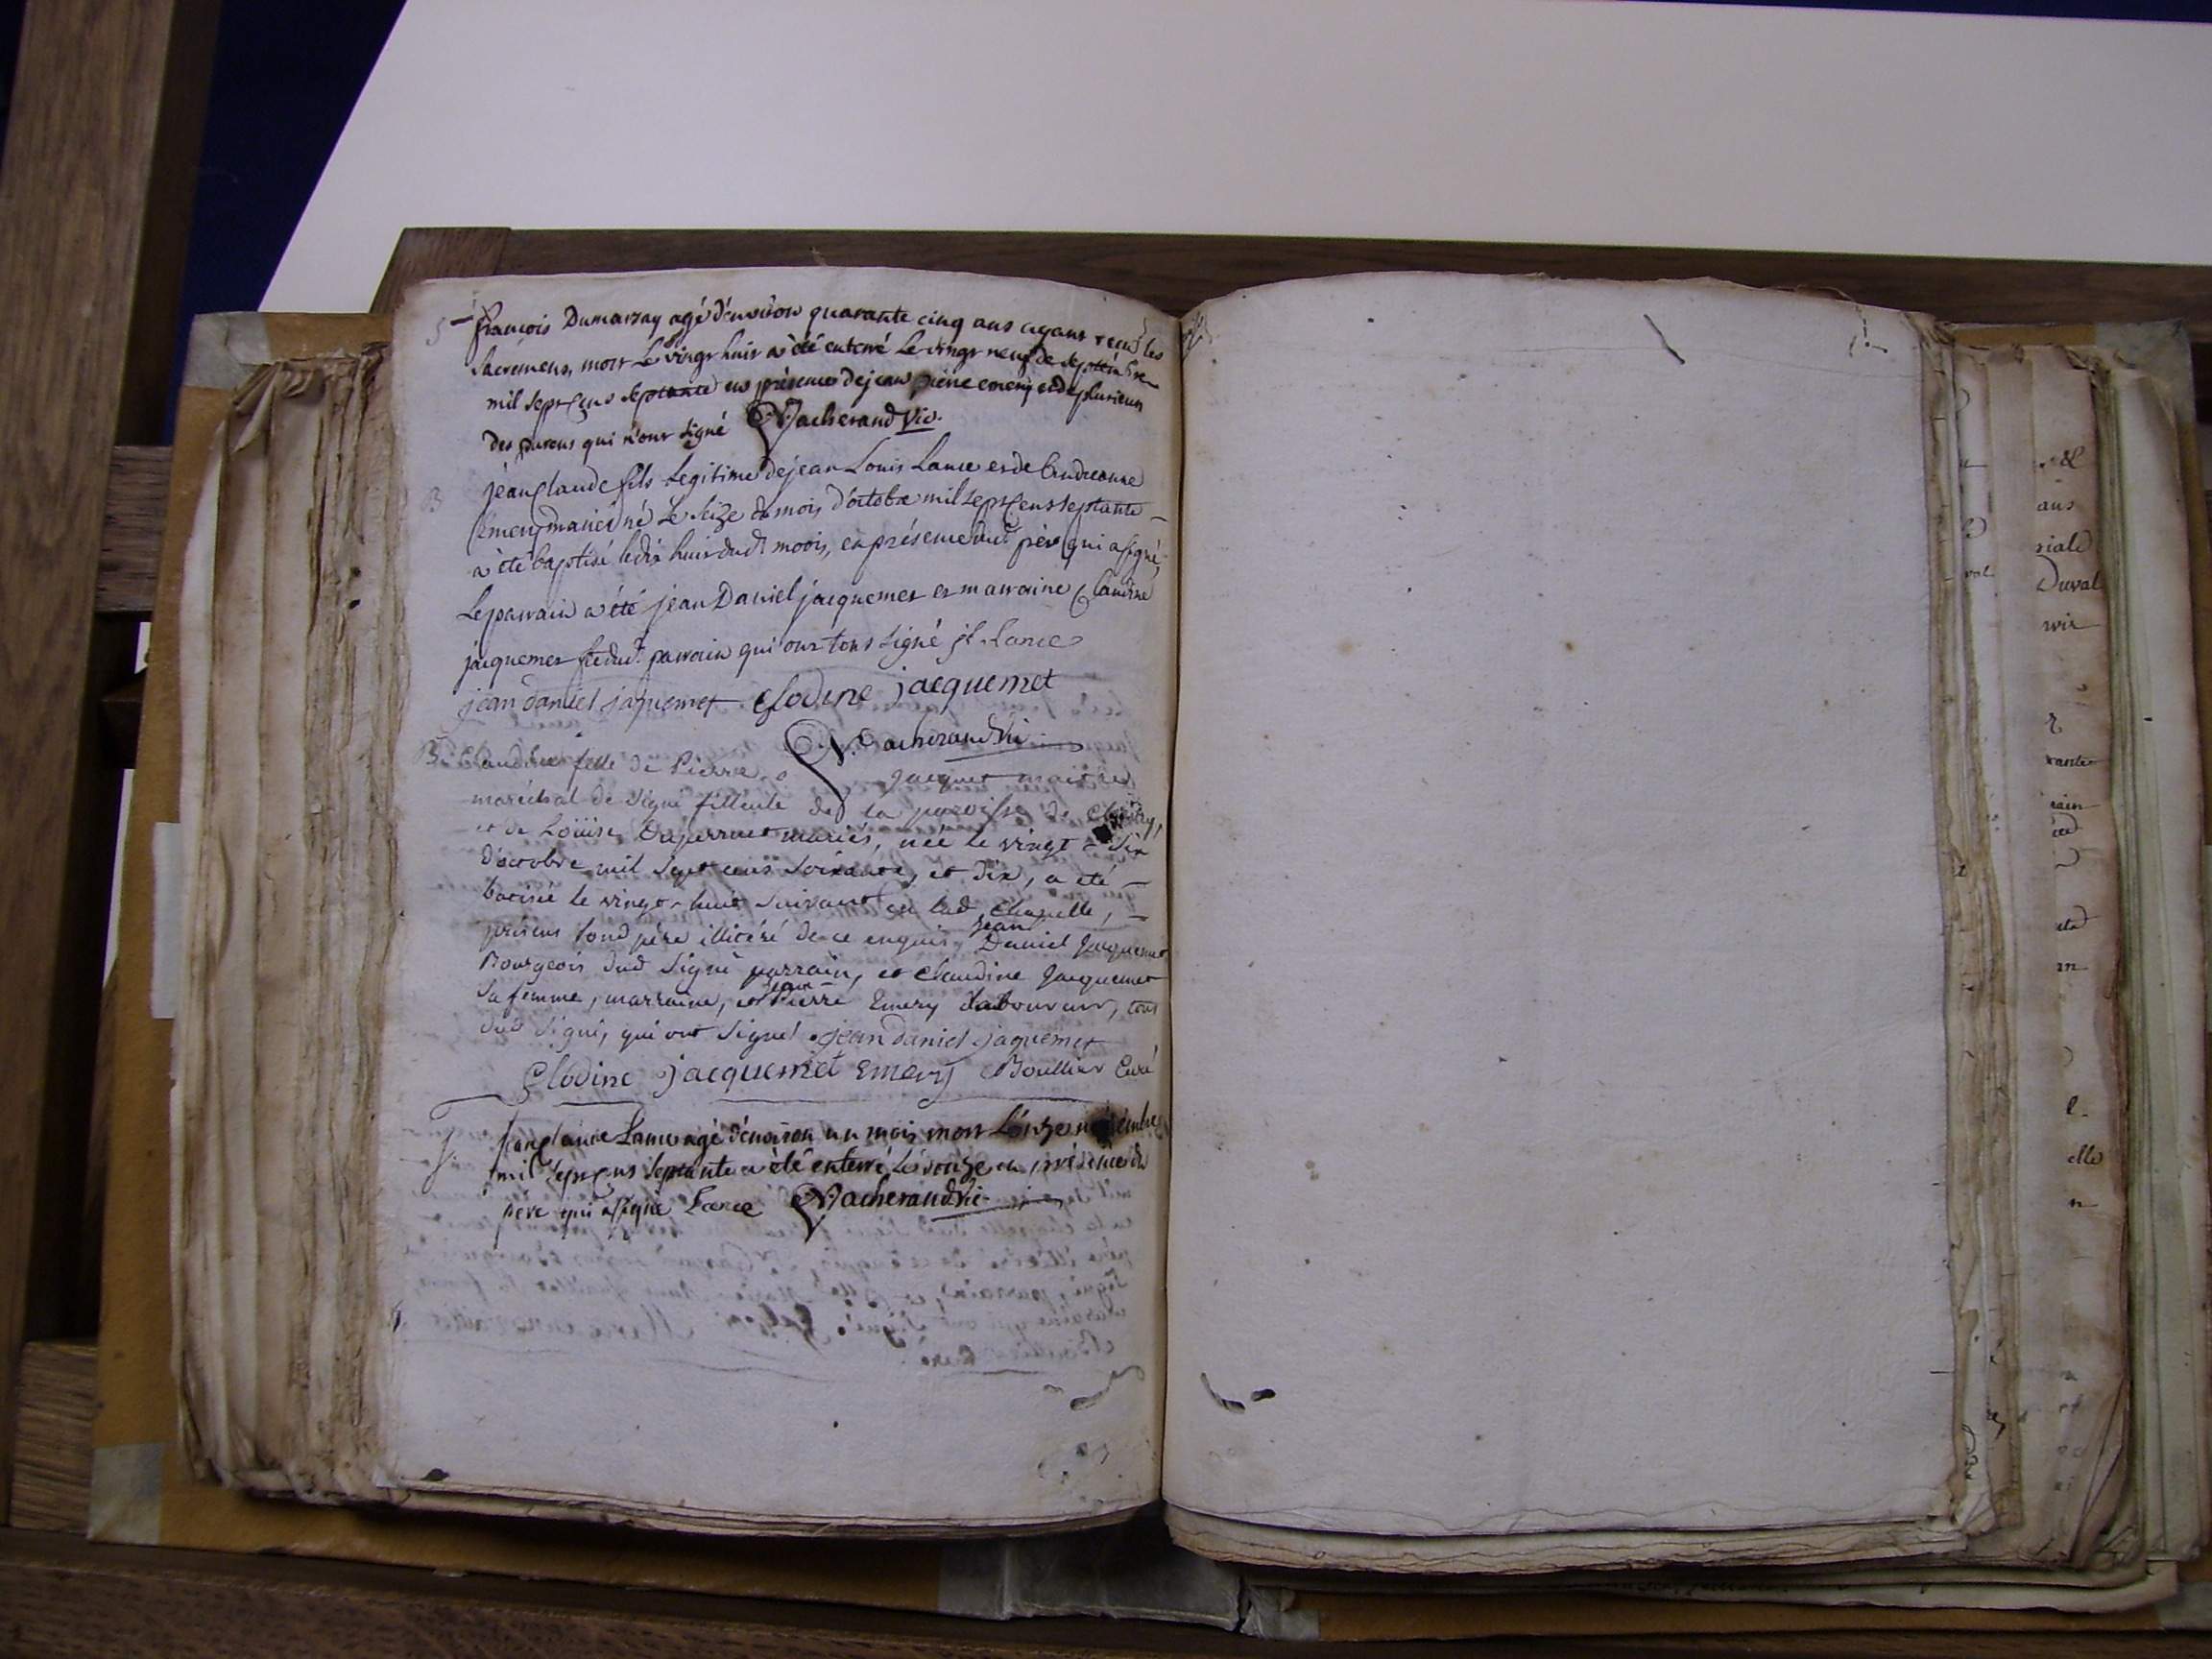 S françois Dumarzay agé d'environ quarante cinq ans ayant reçu les
Sacremens, mort le vingt huit a été enterré le vingt neuf de septembre
mil sept cens septante en présence de jean pierre emery et de plusieurs
des parens qui n'ont signé Vacherand Vic.
B jean claude fils legitime de jean Louis Lance et de Andreanne
Emery mariés né le seize du mois d'octobre mil sept cens septante
a été baptisé le dix huit dud.t mois, en présence dud.t père qui a signé,
Le parrain a été jean Daniel jacquemet et marraine Claudine
jacquemet fe dud.t parrain qui ont tous signé jl. Lance
jean daniel jaquemet Clodine jacquemet
Vacherand Vic
B Claudine fille de Pierre Jacquet maitre
maréchal de Signi filleule de la paroisse de
et de Loüise Duperrut mariés, née le vingt - six
d'octobre mil sept cens soixante, et dix, a eté
batisée le vingt - huit suivant en lad. Chapelle,
présens sond. père illitéré de ce enquis, jean Daniel Jacquemet
Bourgeois dud Signi parrain, et Claudine Jacquemet
sa femme, marraine, et jean Pierre Emery Laboureur, tous
dud Signi, qui ont signé jean daniel jaquemet
Clodine jacquemet Emery Boullier Curé
S. jean claude Lance agé d'environ un mois mort l'onze novembre
mil sept cens septante a été enterré le douze en présence du
père qui a signé Lance Vacherand Vic
&
ans
riale
Duval
val